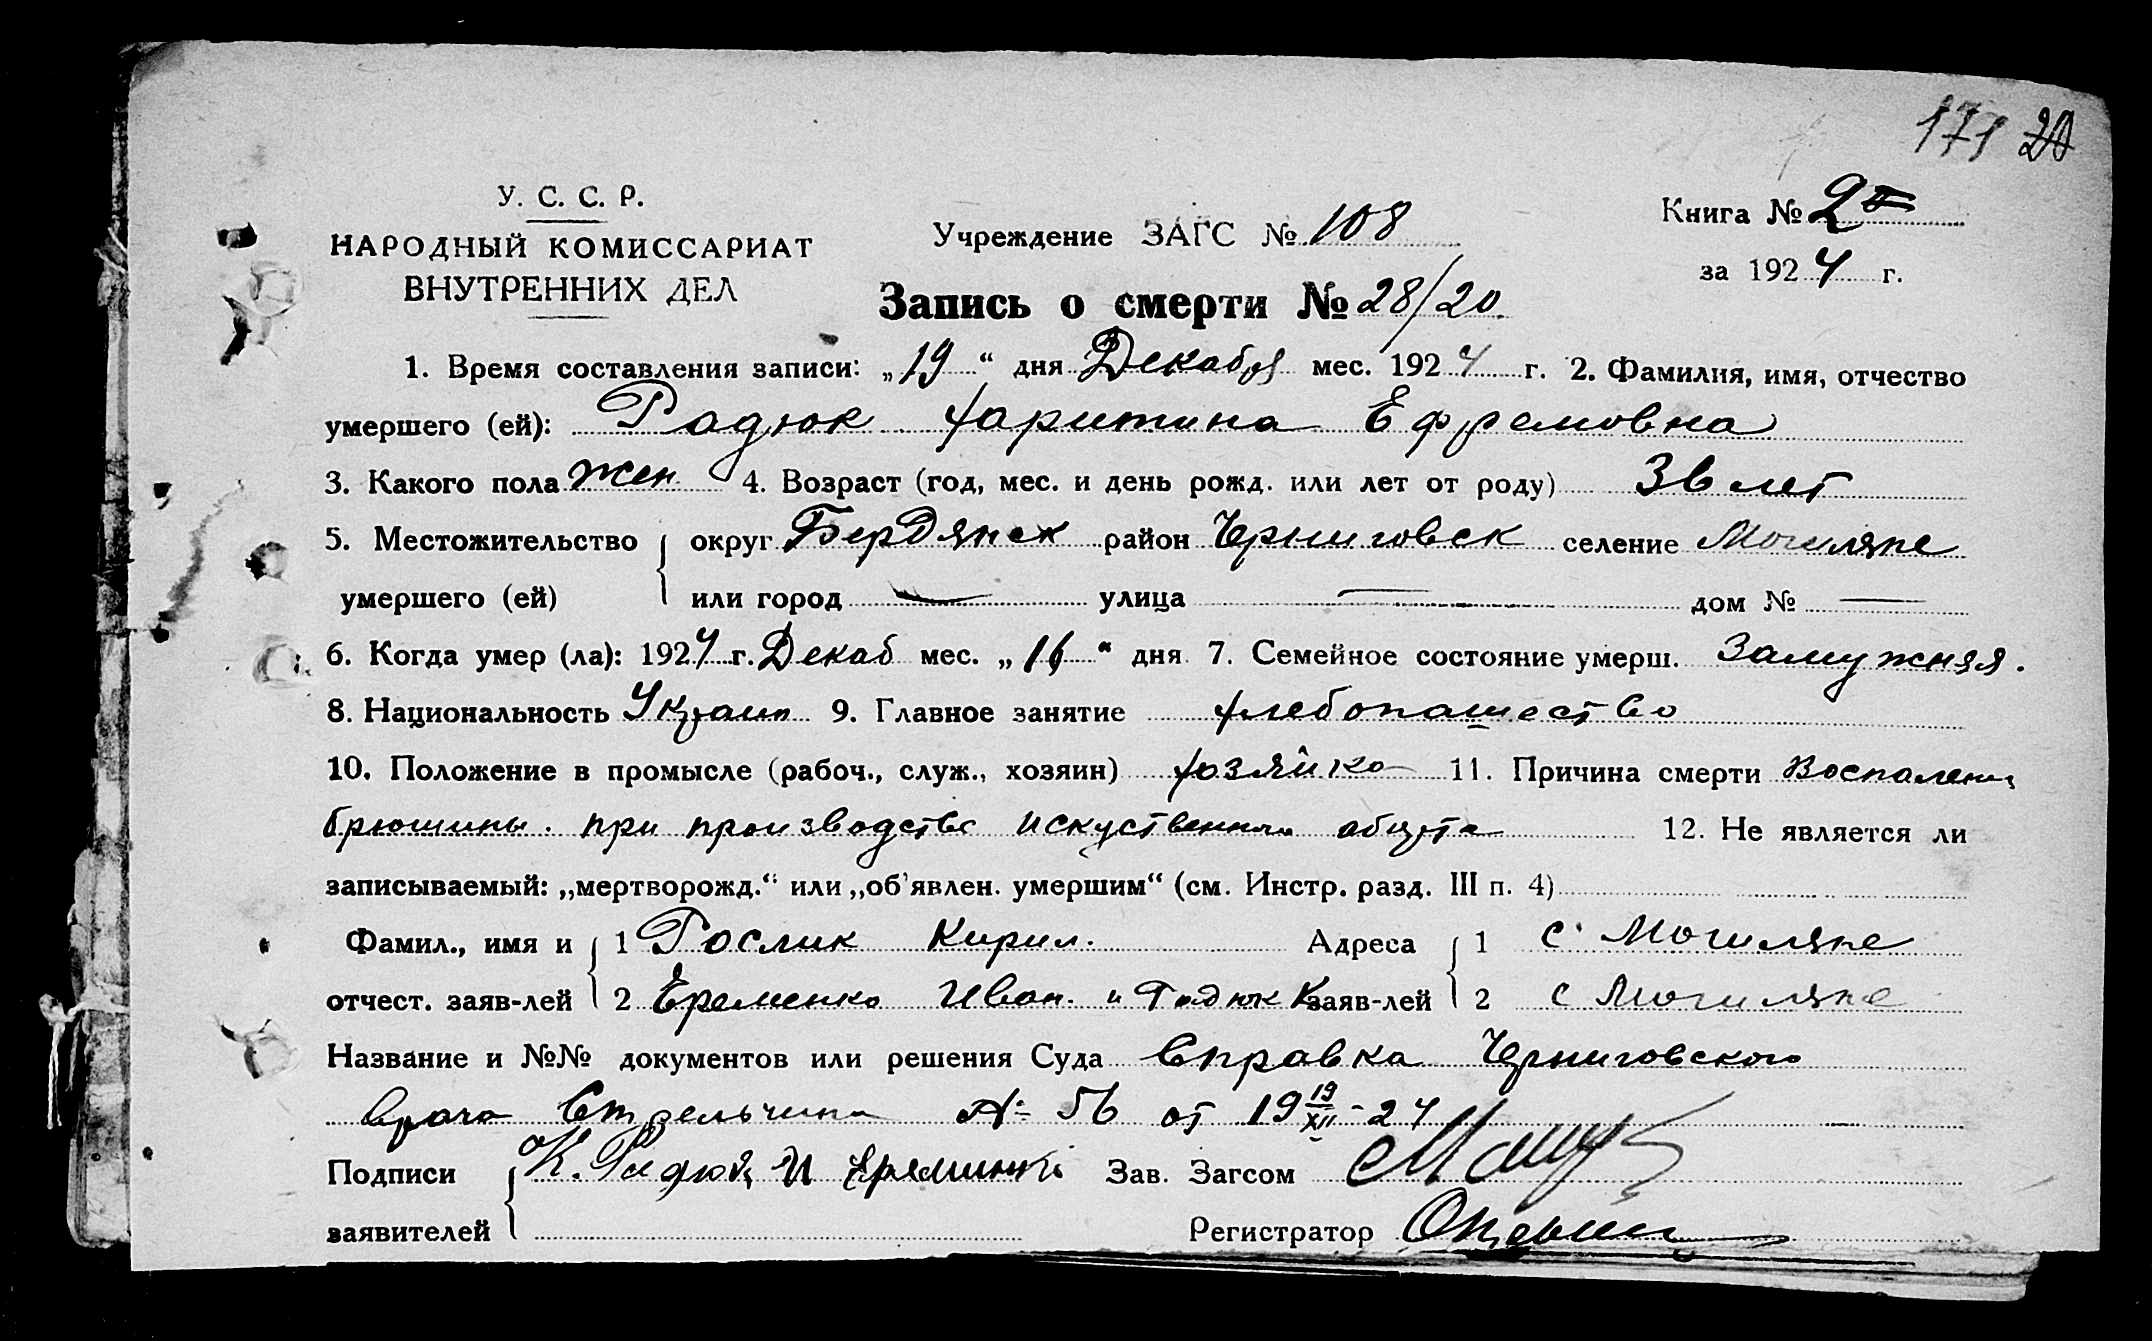 171 20
У. С. С. Р.
НАРОДНЫЙ КОМИССАРИАТ
ВНУТРЕННИХ ДЕЛ
Учреждение ЗАГС № 108
Книга № 2
за 1924 г.
Запись о смерти № 28/20.
1. Время составления записи: „19“ дня Декабря мес. 1924 г. 2. Фамилия, имя, отчество
умершего (ей): Радюк Харитина Ефремовна
3. Какого пола жен. 4. Возраст (год, мес. и день рожд. или лет от роду) 36 лет
5. Местожительство округ Бердянск район Черниговск селение Могиляне
умершего (ей) или город — улица — дом № —
6. Когда умер (ла): 1924 г. Декаб мес. „16“ дня 7. Семейное состояние умерш. Замужняя.
8. Национальность Украин 9. Главное занятие хлебопашество
10. Положение в промысле (рабоч., служ., хозяин) хозяйка 11. Причина смерти Воспалени
брюшины. при производстве искуственного аборта 12. Не является ли
записываемый: „мертворожд.“ или „об'явлен. умершим“ (см. Инстр. разд. III п. 4)
Фамил., имя и 1 Рослик Кирил. Адреса 1 с. Могиляне
отчест. заяв-лей 2 Еременко Иван. и Радюк К заяв-лей 2 с Могиляне
Название и №№ документов или решения Суда Справка Черниговского
врача Стрельчина № 56 от 19 19/XII-24
Подписи К. Радюк И Яременко Зав. Загсом
заявителей Регистратор